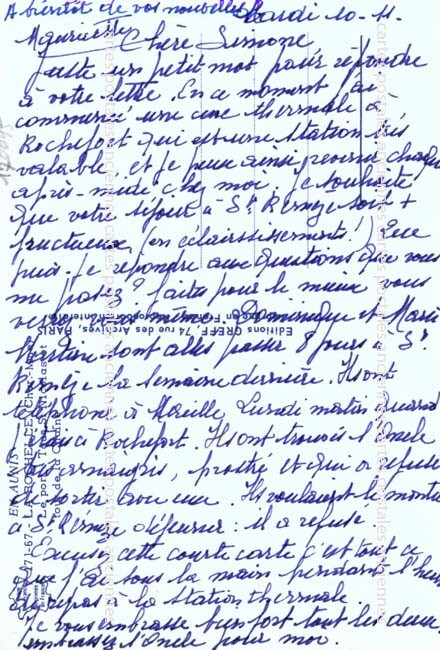 A bientôt de vos nouvelles Mardi 10-11.
Mauricette Chère Simone
Juste un petit mot pour répondre
à votre lettre. En ce moment j'ai
commencé une cure thermale à
Rochefort qui est une station très
valable, et je peux ainsi revenir chaque
après-midi chez moi. Je souhaite
que votre séjour à St Rémèze soit +
fructueux (en éclaircissements!) Que
puis-je répondre aux questions que vous
me posez? faites pour le mieux vous
verrez vous même. Dominique et Marie
Martine sont allés passer 8 jours à St
Rémèze la semaine dernière. Ils ont
téléphoné à Mireille Lundi matin quand
j'étais à Rochefort. Ils ont trouvé l'Oncle
très amaigri, prostré et qui a refusé
de sortir avec eux. Ils voulaient le monter
à St Rémèze déjeuner: il a refusé.
Excuse cette courte carte c'est tout ce
que j'ai sous la main pendant l'heure
du repas à la Station thermale.
Je vous embrasse bien fort tous les deux
embrassez l'Oncle pour moi.
Editions GREFF, 74 rue des Archives, PARIS
EN AUNIS
171-67 - LA ROCHELLE (Ch.-Mme)
Le port